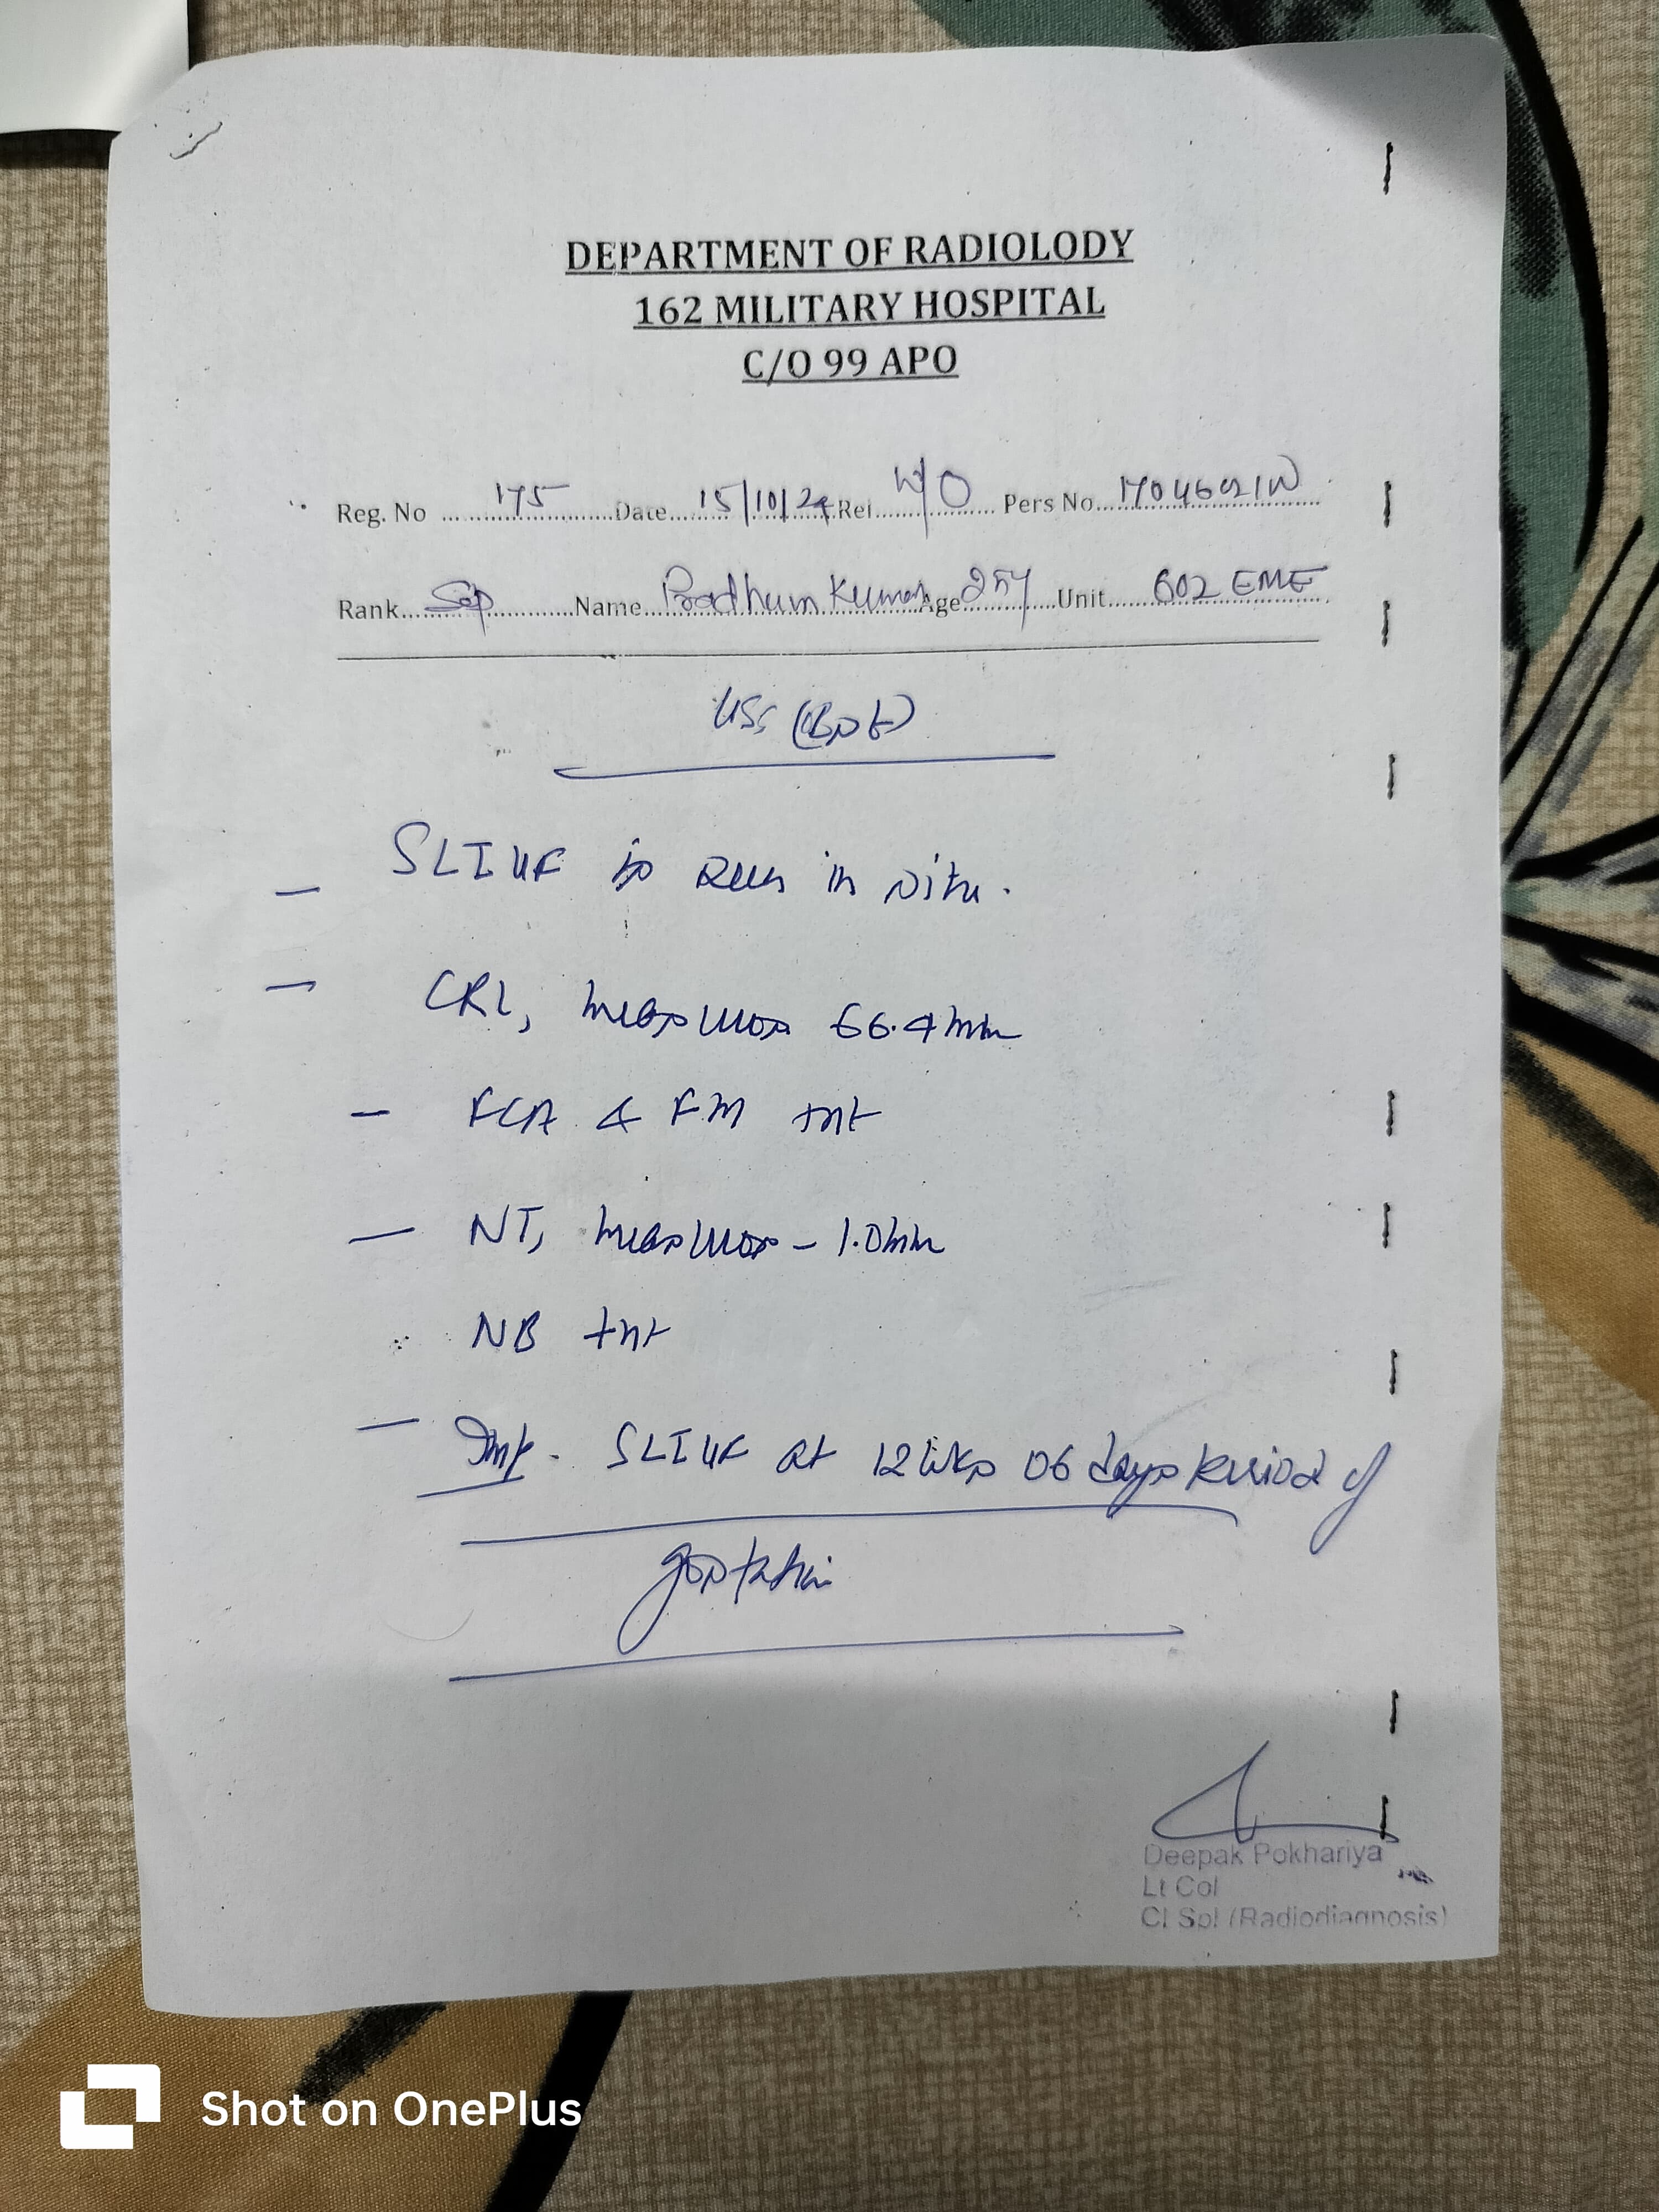 DEPARTMENT OF RADIOLODY
162 MILITARY HOSPITAL
C/O 99 APO
Reg. No 175 Date 15/10/24 Rel W/O Pers No
Rank Sep Name Kumar Age 25y Unit 602 EME
USG (Obst)
- SLIUF is seen in situ.
- CRL, measures 66.4mm
- FCA & FM +nt
- NT, measures - 1.0mm
NB +nt
- Imp. SLIUF at 12 wks 06 days period of
gestation
Deepak Pokhariya
Lt Col
Cl Spl (Radiodiagnosis)
Shot on OnePlus